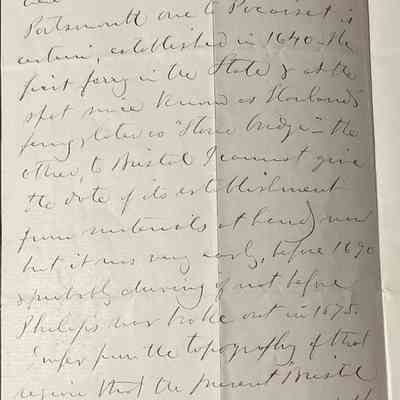 Portsmouth one to Pocasset is
certain, established in 1640 - the
first ferry in the State & at the
spot since known as Howland's
ferry, later as "Stone bridge" - the
other, to Bristol I cannot give
the date of its establishment
from materials at hand, now
but it was very early, before 1690
& probably during if not before
Philip's war broke out in 1675.
I infer from the topography of that
region that the present Bristol